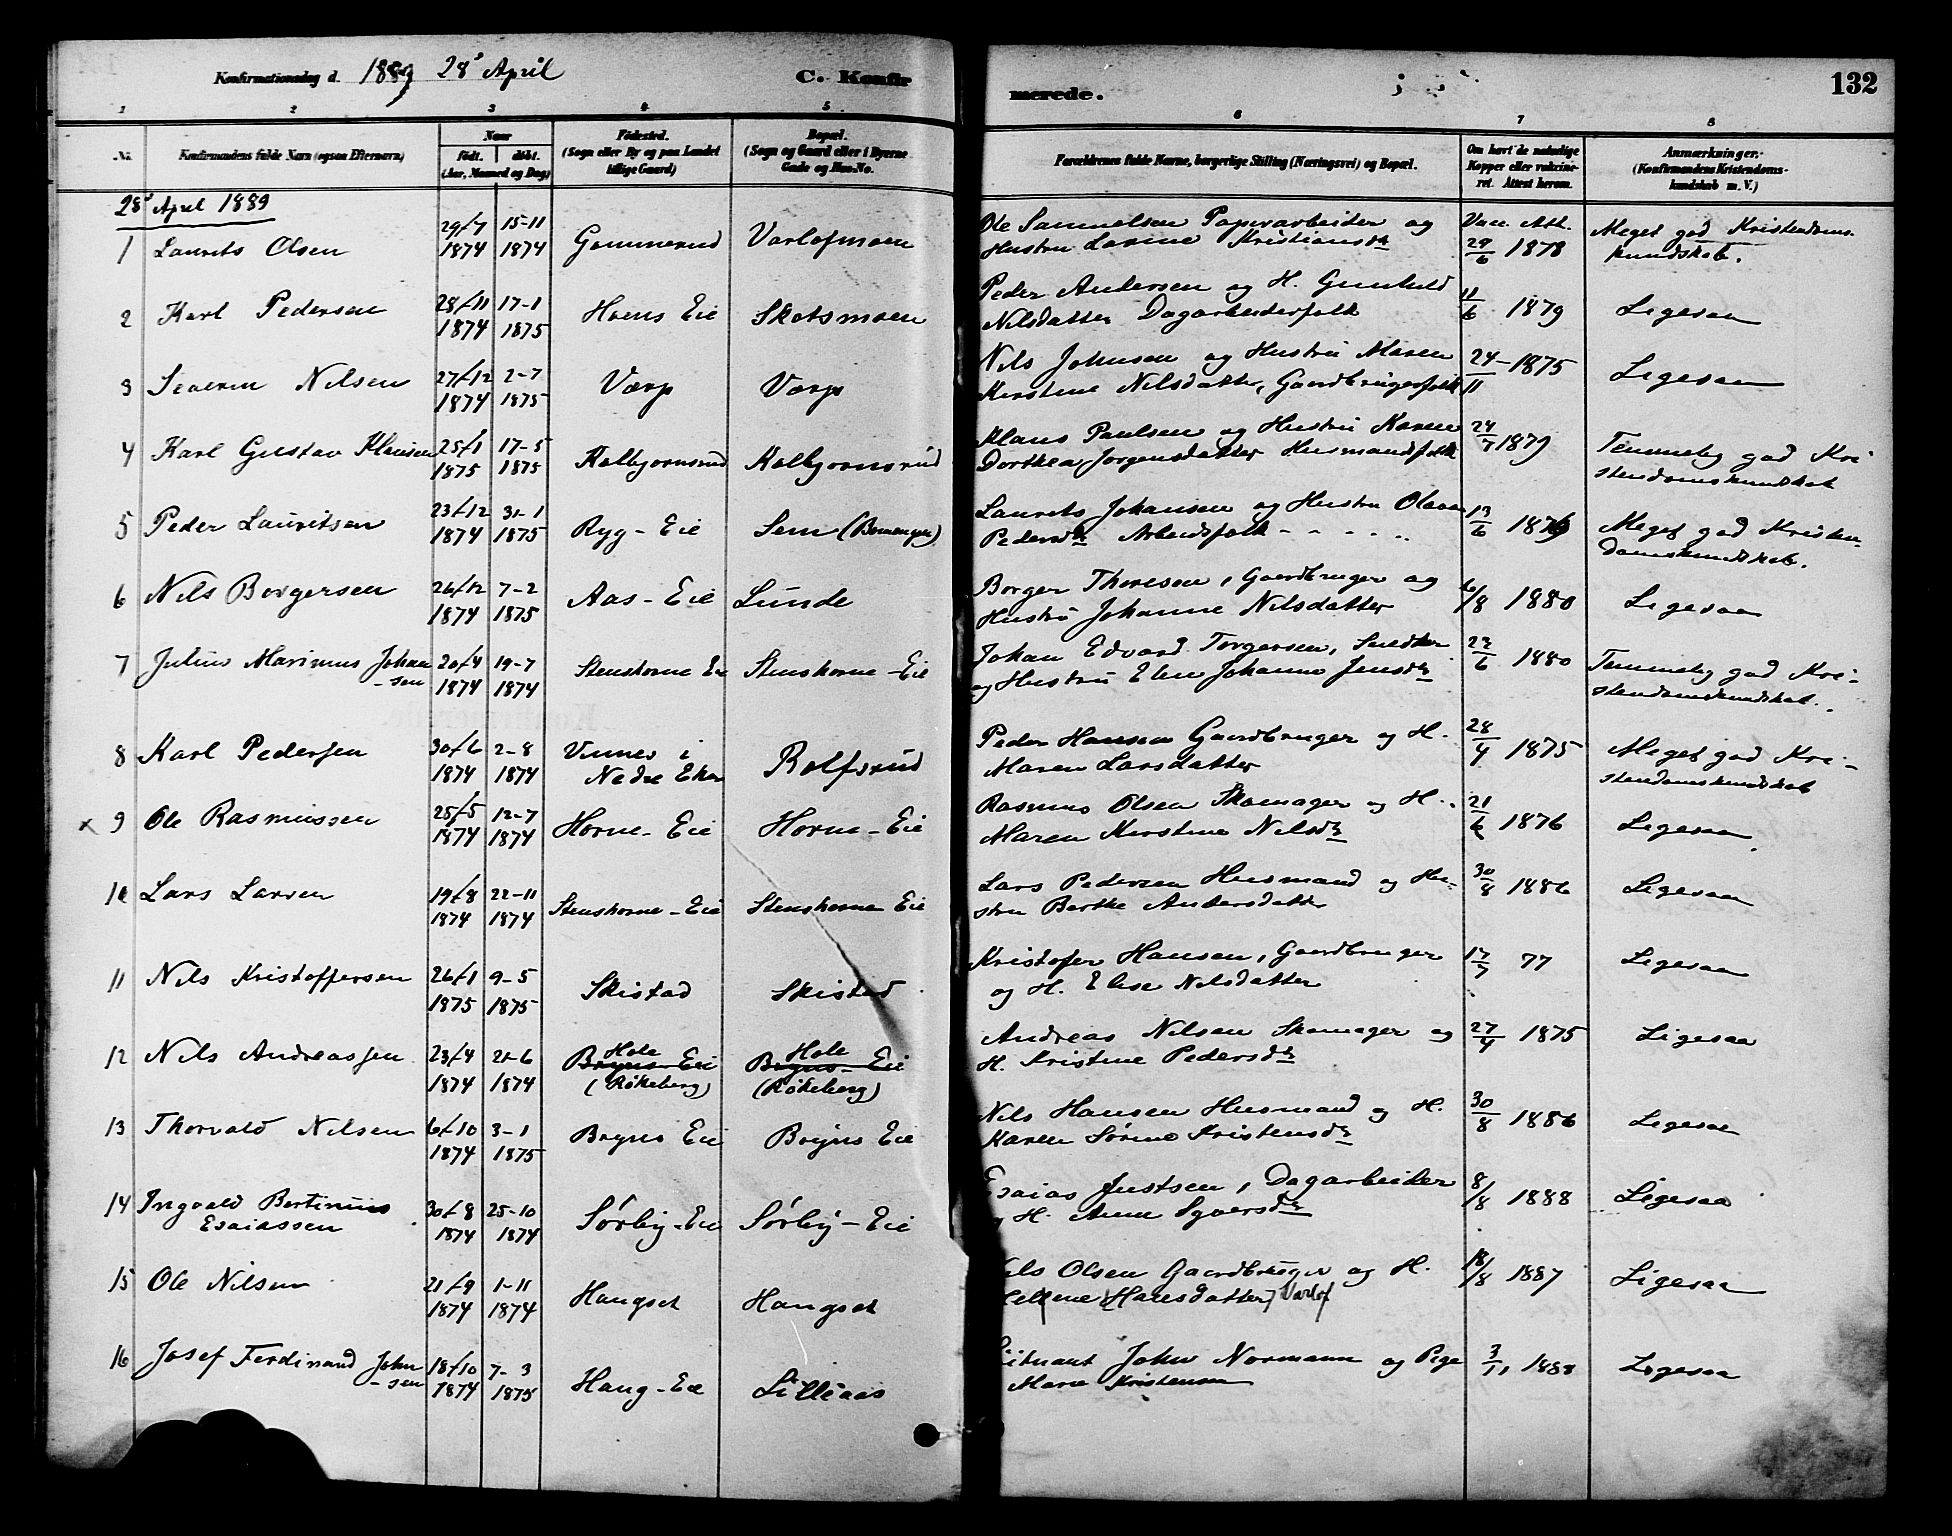 Konfirmationsdag d. 1889 28de April C. Konfirmerede. 132
1 2 3 4 5 6 7 8
Nr. Konfirmandens fulde Navn (ogsaa Efternavn) Naar født. døbt. (Aar, Maaned og Dag) Fødested. (Sogn eller By og paa Landet tillige Gaard) Bopæl. (Sogn og Gaard eller i Byerne Gade og Hus-No. Forældrenes fulde Navne, borgerlige Stilling (Næringsvei) og Bopæl. Om havt de naturlige Kopper eller vakcineret. Attest herom. Anmærkninger. (Konfirmandens Kristendomskundskab m. V.)
28d April 1889
1 Laurits Olsen 29/7 1874 15-11 1874 Gommerud Varlofmoen Ole Samuelsen Papirarbeider og Hustru Lovine Kristiansdtr Vacc. Att. 29/6 1878 Meget god Kristendomskundskab.
2 Karl Pedersen 28/11 1874 17-1 1875 Hoens Eie Skotsmoen Peder Andersen og H. Gunhild Nilsdatter Dagarbeiderfolk 11/6 1879 Ligesaa
3 Severin Nilsen 27/12 1874 2-7 1875 Værp Værp Nils Johnsen og Hustru Maren Kirstine Nilsdatter, Gaardbrugerfolk 24/11 1875 Ligesaa
4 Karl Gustav Klausen 25/1 1875 17-5 1875 Kolbjornsrud Kolbjornsrud Klaus Paulsen og Hustru Karen Dorthea Jorgensdatter Husmandsfolk 24/7 1879 Temmelig god Kristendomskundskab
5 Peder Lauritsen 23/12 1874 31-1 1875 Ryg-Eie Sem Laurits Johansen og Hustru Olava Pedersdtr Arbeidsfolk 13/6 Meget god Kristendomskundskab.
6 Nils Borgersen 26/12 1874 7-2 1875 Aas-Eie Lunde Borger Thoresen, Gaardbruger og Hustru Johanne Nilsdatter 6/8 1880 Ligesaa
7 Julius Marinius Johansen 20/4 1874 19-7 1874 Stenshorne Eie Stenshorne-Eie Johan Edvard Torgersen, Snedker og Hustru Elen Johanne Jensdtr 22/6 1880 Temmelig god Kristendomskundskab.
8 Karl Pedersen 30/6 1874 2-8 1874 Vinnes i Nedre Eker Rolfsrud Peder Hansen Gaardbruger og H. Maren Larsdatter 28/4 1875 Meget god Kristendomskundskab
x 9 Ole Rasmussen 25/5 1874 12-7 1874 Horne-Eie Horne-Eie Rasmus Olsen Skomager og H. Maren Kirstine Nilsdtr 21/6 1876 Ligesaa
10 Lars Larsen 19/8 1874 22-11 1874 Stenshorne-Eie Stenshorne Eie Lars Pedersen Husmand og Hustru Berthe Andersdatt 30/8 1886 Ligesaa
11 Nils Kristoffersen 26/1 1875 9-5 1875 Skistad Skistad Kristofer Hansen, Gaardbruger og H. Elise Nilsdatter 17/7 77 Ligesaa
12 Nils Andreassen 23/4 1874 21-6 1874 Hole Bryns Eie (Røkeberg) Hole Bryns-Eie (Røkeberg) Andreas Nilsen Skomager og H. Kristine Pedersdtr 27/4 1875 Ligesaa
13 Thorvald Nilsen 6/10 1874 3-1 1875 Bryns Eie Bryns Eie Nils Hansen Husmand og H. Karen Sørine Kristensdtr 30/8 1886 Ligesaa
14 Ingvald Bertinius Esaiassen 30/8 1874 25-10 1874 Sørby-Eie Sørby-Eie Esaias Justsen, Dagarbeider og H. Anne Syversdtr 8/8 1888 Ligesaa
15 Ole Nilsen 21/9 1874 1-11 1874 Haugset Haugset Nils Olsen Gaardbruger og H. Hansdatter Varlof 18/8 1887 Ligesaa
16 Josef Ferdinand Johnsen 18/10 1874 7-3 1875 Haug-Eie Lilleaas Løitnant John Normann og Pige Maren Kristensen 3/11 1888 Ligesaa